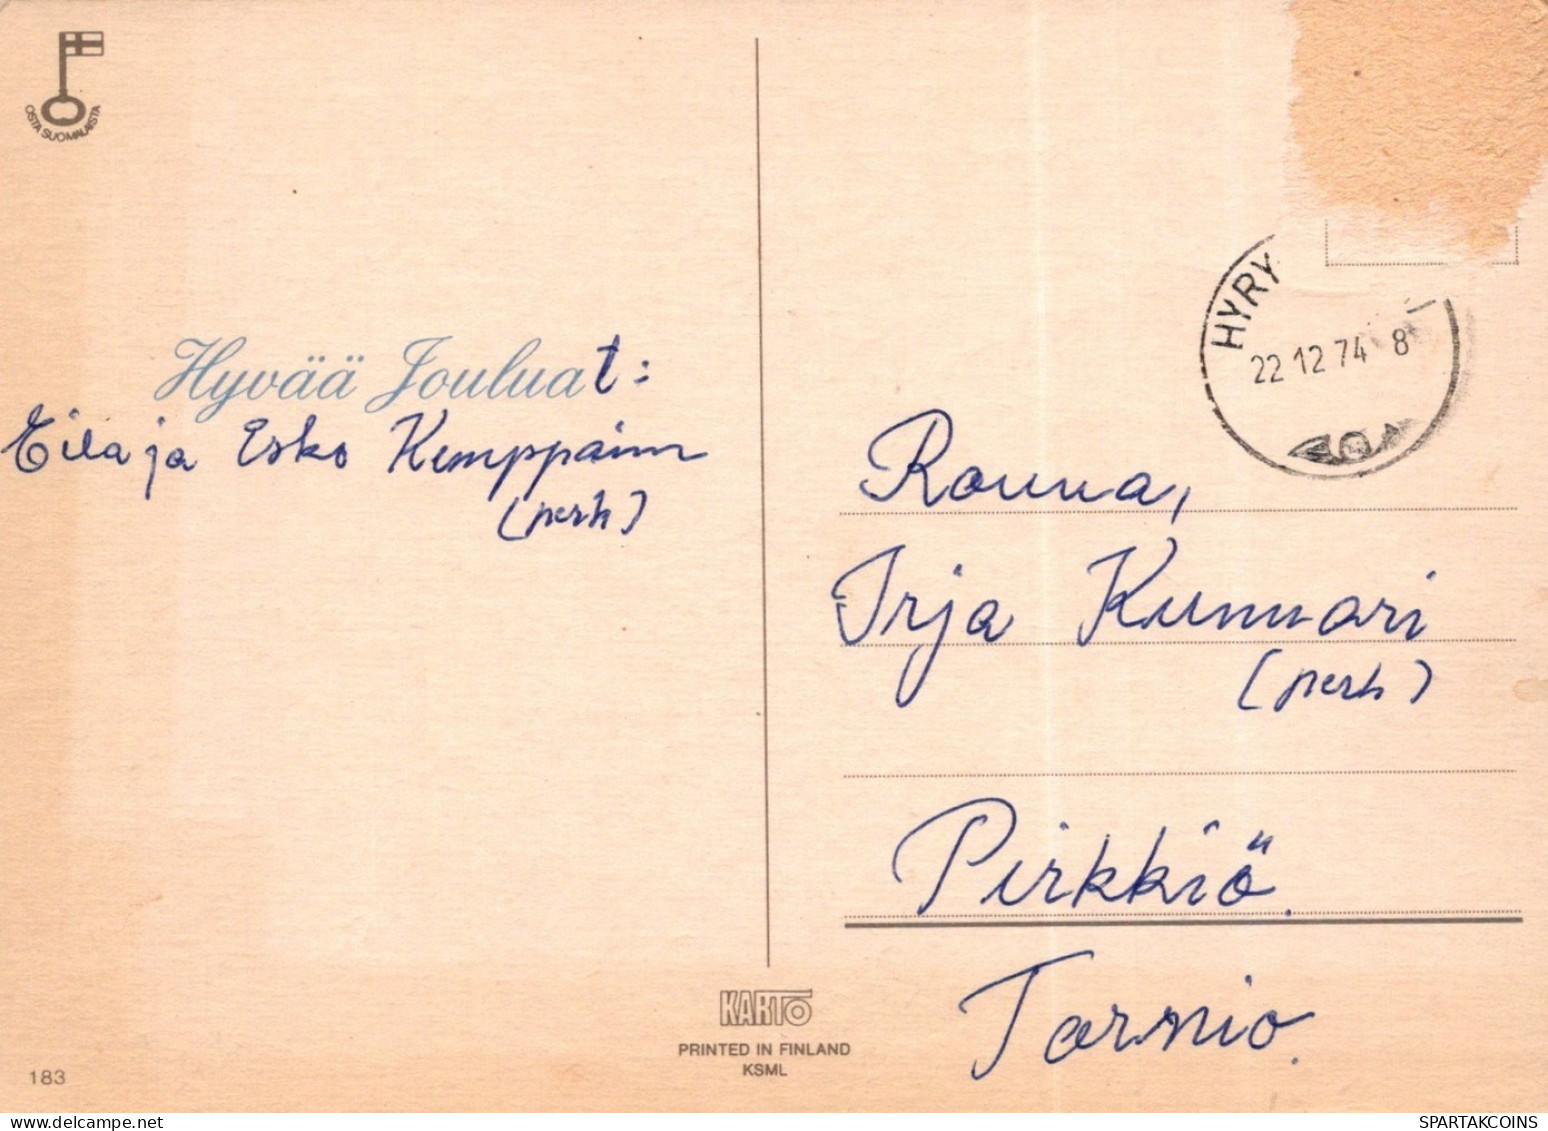 OSTA SUOMALAISTA
Hyvää Jouluat:
Eila ja Esko Kemppainen
(perh)
HYRY
22 12 74 8
Rouva,
Irja Kunnari
(perh)
Pirkkiö.
Tornio.
KARTO
PRINTED IN FINLAND
KSML
183
SPARTAKCOINS